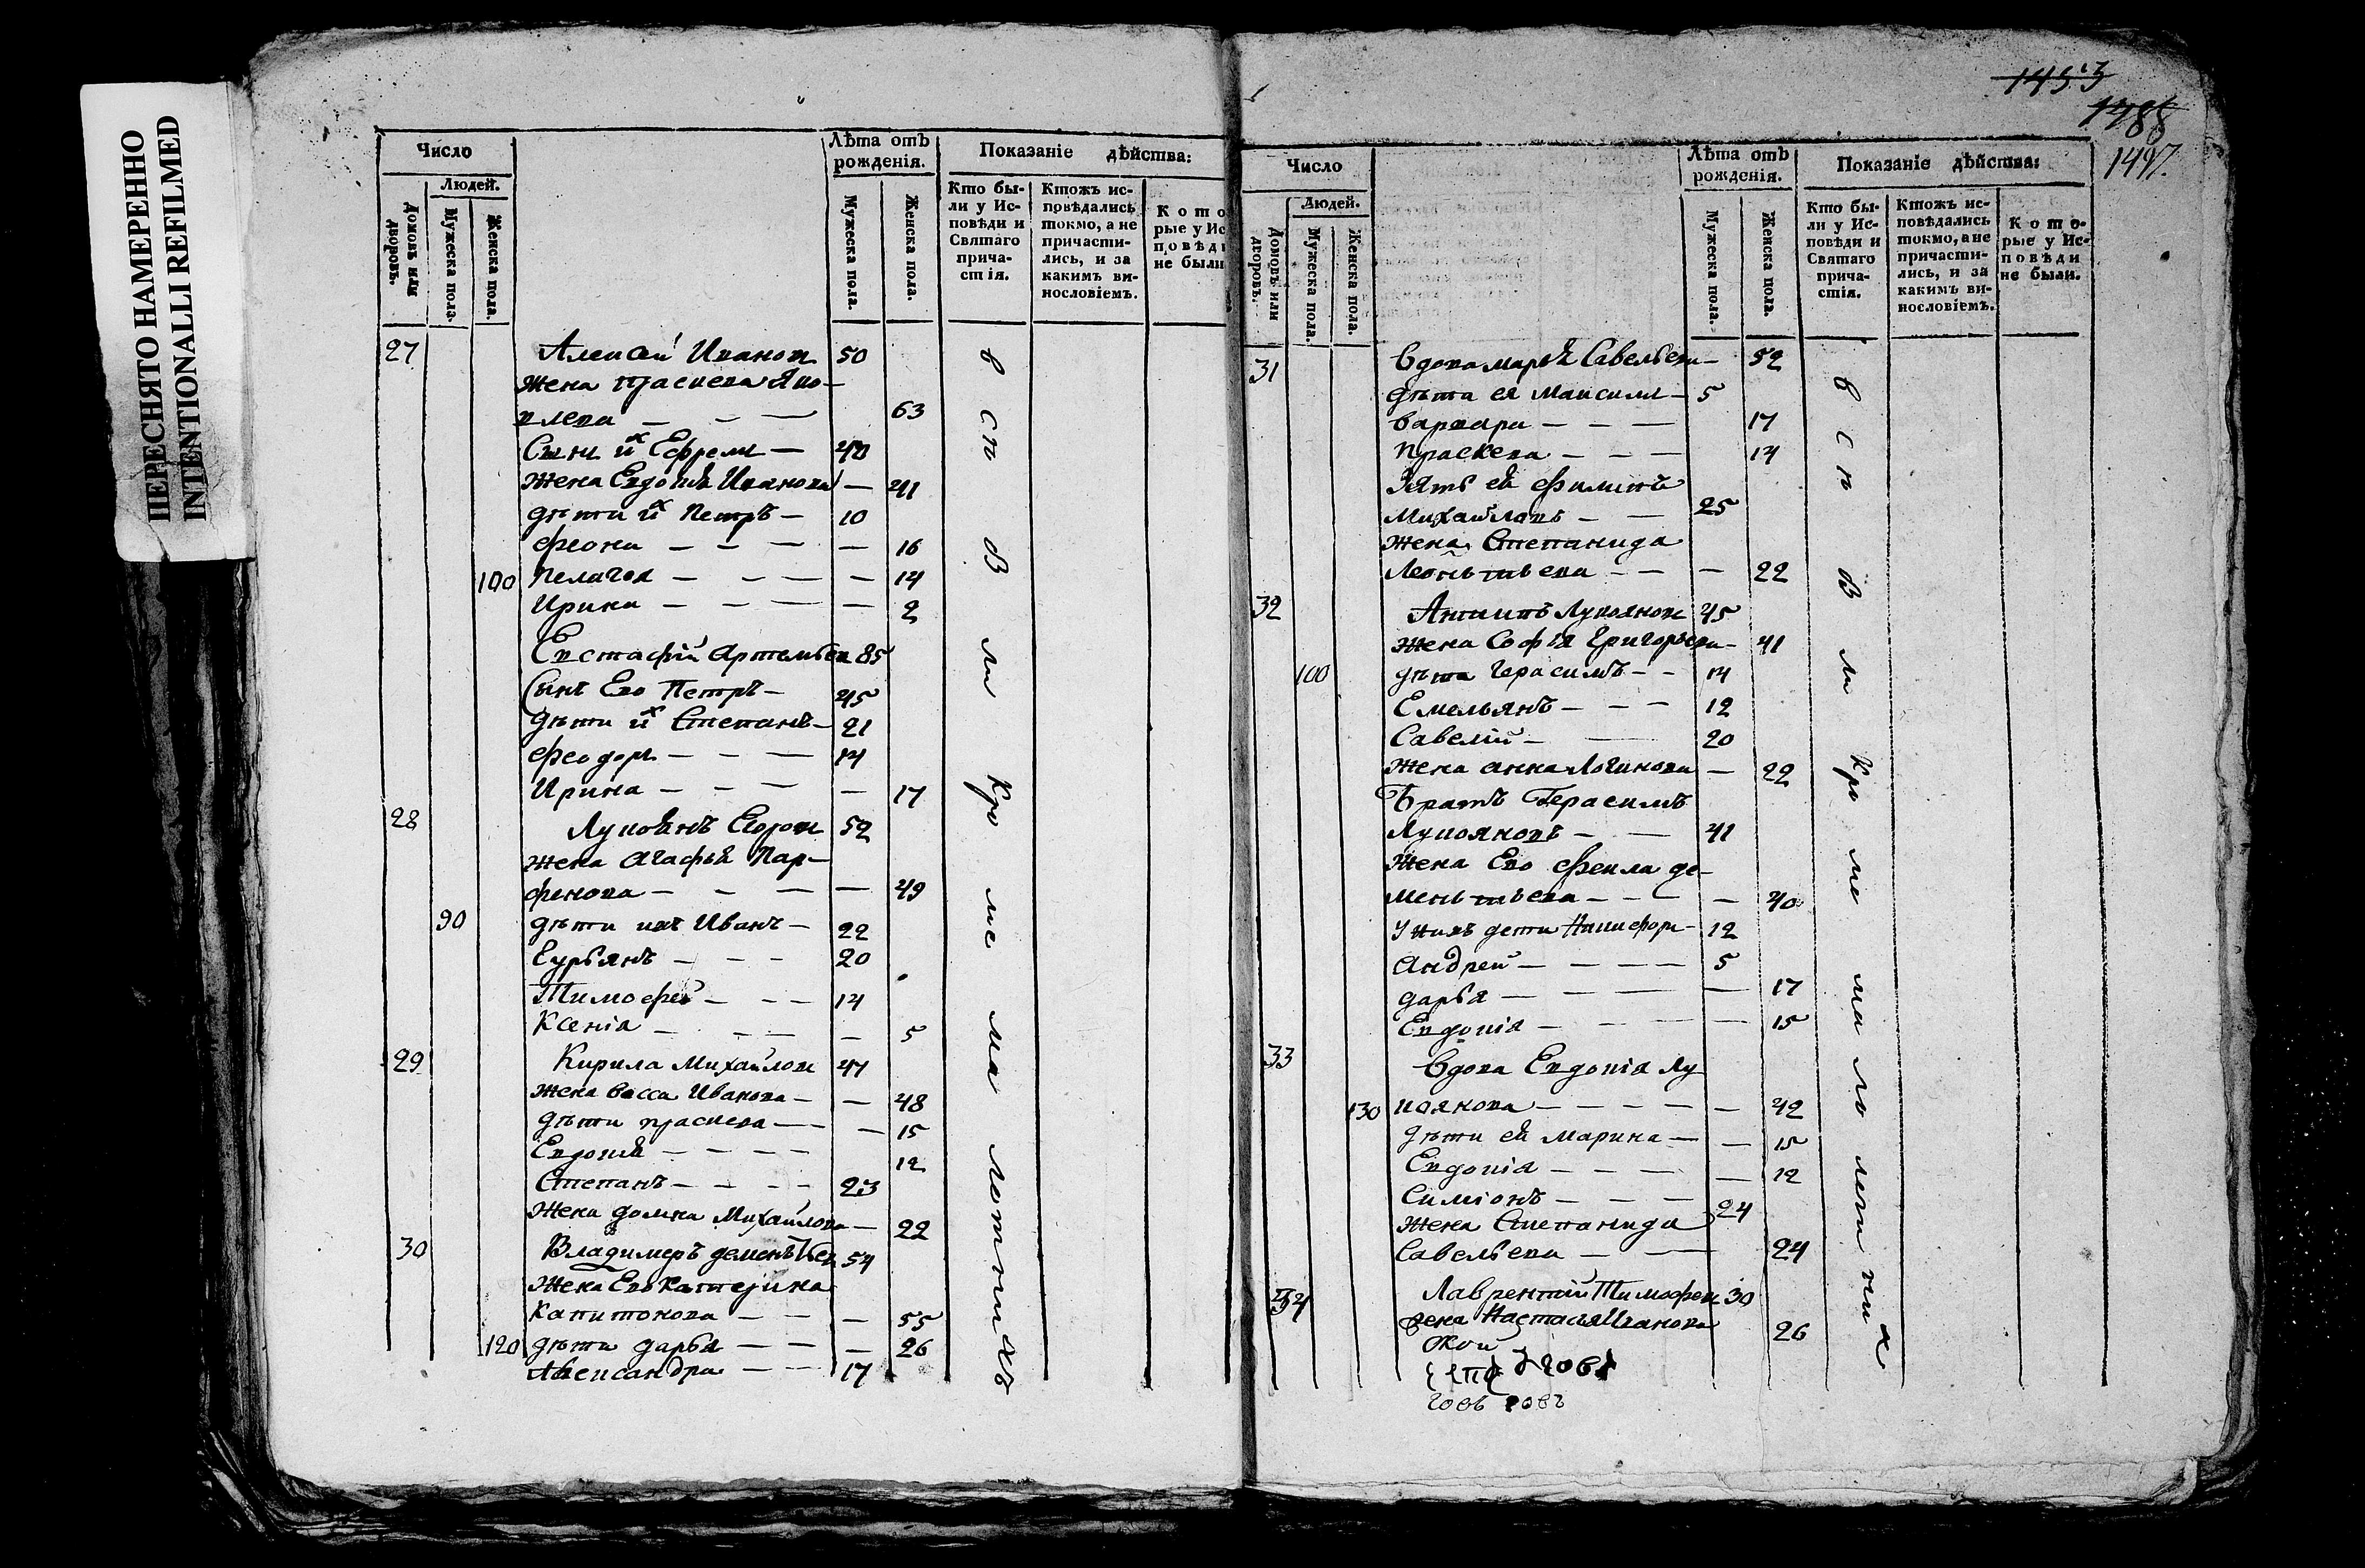 ПЕРЕСНЯТО НАМЕРЕННО
INTENTIONALLI REFILMED
Число
Людей.
Домовъ или дворовъ.
Мужеска пола.
Женска пола.
Лѣта отъ рожденія.
Мужеска пола.
Женска пола.
Показаніе дѣйства:
Кто были у Исповѣди и Святаго причастія.
Ктожъ исповѣдались токмо, а не причастились, и за какимъ винословіемъ.
Кото
рые у Ис
повѣди
не были
27 Алексѣй Иванов 50
жена праскева Яко-
влева — — — 63
Сынъ их Ефрем — 40
жена Евдокія Иванова — 41
дѣти их Петръ — 10
феона — — — — 16
100 Пелагея — — — — 14
Ирина — — — — 2
Евстафій Артемьев 85
Сынъ Его Петръ — 45
дѣти их Степанъ — 21
феодоръ — — — 14
Ирина — — — — 17
28 Лукоянъ Егоров 52
жена Агафья Пар-
фенова — — — — 49
90 дѣти ихъ Иванъ — 22
Гурьянъ — — — 20
Тимофей — — — 14
Ксенія — — — — 5
29 Кирила Михайлов 47
жена васса Иванова — — 48
дѣти праскева — — — 15
Евдокія — — — — 12
Степанъ — — — — 23
жена домна Михайлова — 22
30 Владимеръ дементьев 54
жена Его Катерина
Капитонова — — — 55
120 дѣти дарья — — — 26
Александра — — 17
всп
в
ли
Кро
ме
ма
лотнихъ
1453
1488
1497.
Число
Людей.
Домовъ или дворовъ.
Мужеска пола.
Женска пола.
Лѣта отъ рожденія.
Мужеска пола.
Женска пола.
Показаніе дѣйства:
Кто были у Исповѣди и Святаго причастія.
Ктожъ исповѣдались токмо, а не причастились, и за какимъ винословіемъ.
Которые у Исповѣди не были.
31 вдова марья Савельева — 52
дѣти ея Максим — 5
варвара — — — 17
праскева — — — 14
Зять ей Филипъ
Михайловъ — — 25
жена Степанида
Леонътьева — — — 22
32 Антипъ Лукоянов 45
жена Софія Григорьева — 41
100 дѣти Герасимъ — — 14
Емельянъ — — — 12
Савелій — — 20
жена анна Логинова — 22
Братъ Герасимъ
Лукояновъ — — 41
жена Его Фекла де-
менътьева — — — — 40
У нихъ дети Никифоръ — 12
Андрей — — — — 5
дарья — — — — — 17
Евдокія — — — — 15
33 вдова Евдокія Лу
130 коянова — — — — — 42
дѣти ей Марина — — 15
Евдокія — — — — 12
Симіонъ — — — 24
жена Степанида
Савельева — — — 24
34 Лаврентій Тимофеев 30
жена Настасья Иванова 26
в
с
п
в
ли
Кро
ме
ма
ло
лет
них